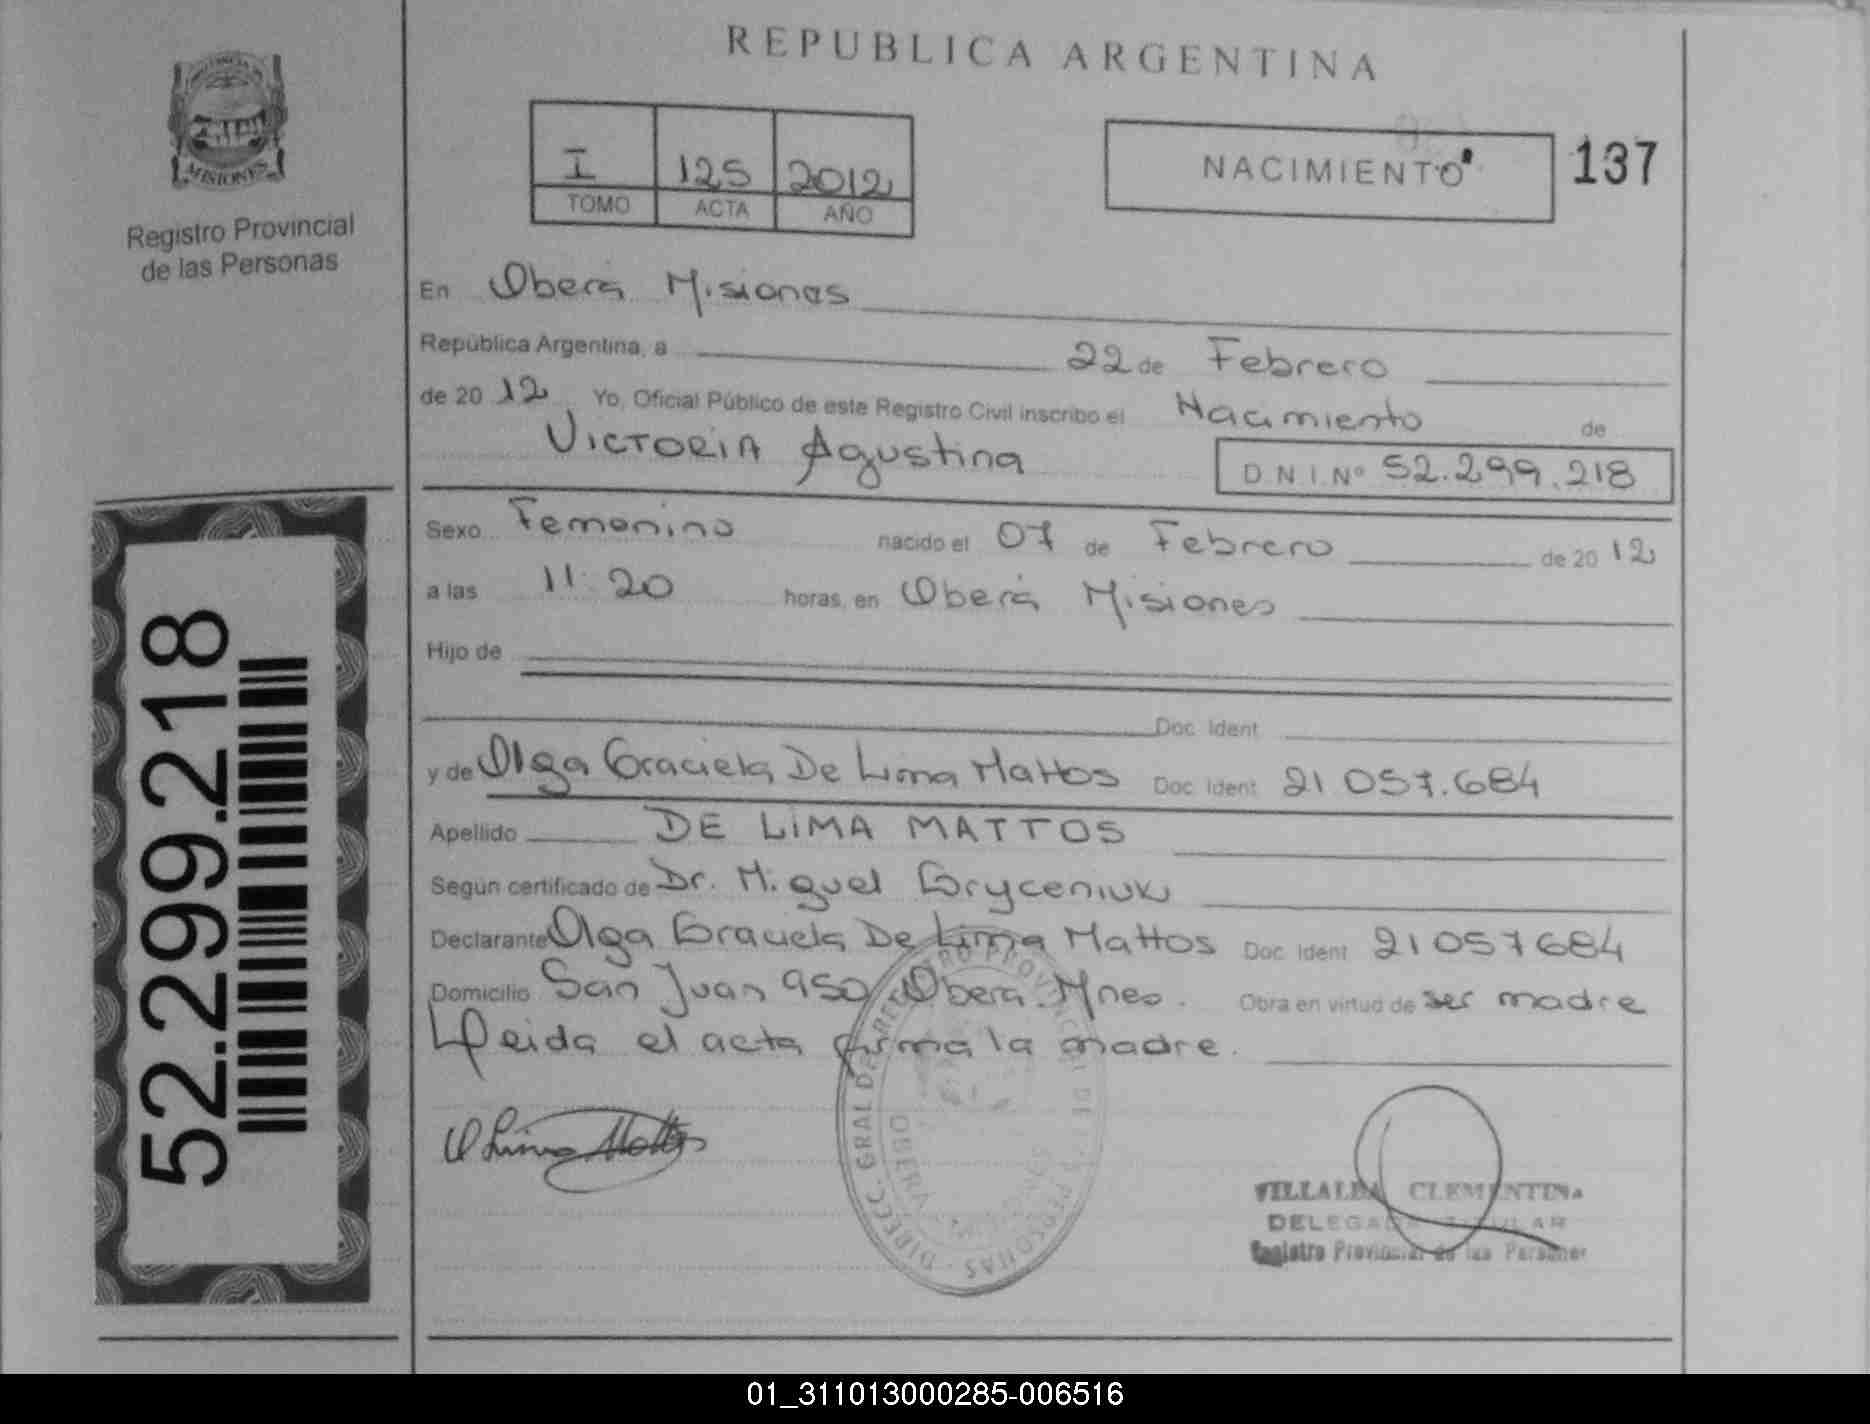 REPUBLICA ARGENTINA
MISIONES
Registro Provincial
de las Personas
I 125 2012
TOMO ACTA AÑO
NACIMIENTO 137
En Oberá Misiones
República Argentina, a 22 de Febrero
de 20 12 Yo, Oficial Público de este Registro Civil inscribo el Nacimiento de
VICTORIA Agustina D.N.I. Nº 52.299.218
Sexo Femenino nacido el 07 de Febrero de 20 12
a las 11:20 horas, en Oberá Misiones
Hijo de
Doc. Ident
y de Olga Graciela De Lima Mattos Doc. Ident 21 057.684
Apellido DE LIMA MATTOS
Según certificado de Dr. Miguel Gryceniuk
Declarante Olga Graciela De Lima Mattos Doc. Ident 21057684
Domicilio San Juan 950 Oberá. Mnes. Obra en virtud de ser madre
Leida el acta firma la madre.
52.299.218
DIRECC. GRAL DE REGISTRO PROVINCIAL DE LAS PERSONAS
OBERÁ MISIONES
VILLALBA CLEMENTINA
DELEGADA TITULAR
Registro Provincial de las Personas
01_311013000285-006516